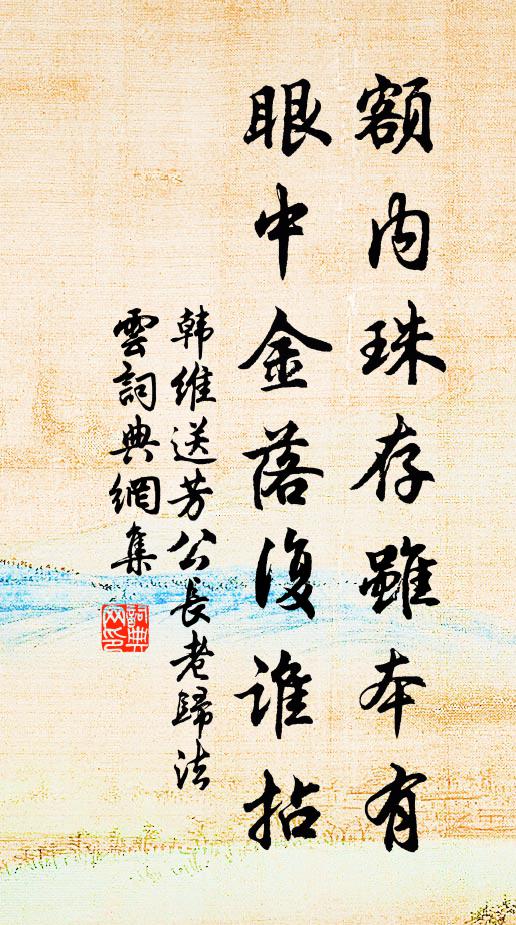 額内珠存雖本有
眼中金落復誰拈
韩維送芳公長老歸法
雲詞典網集
詞典
网印